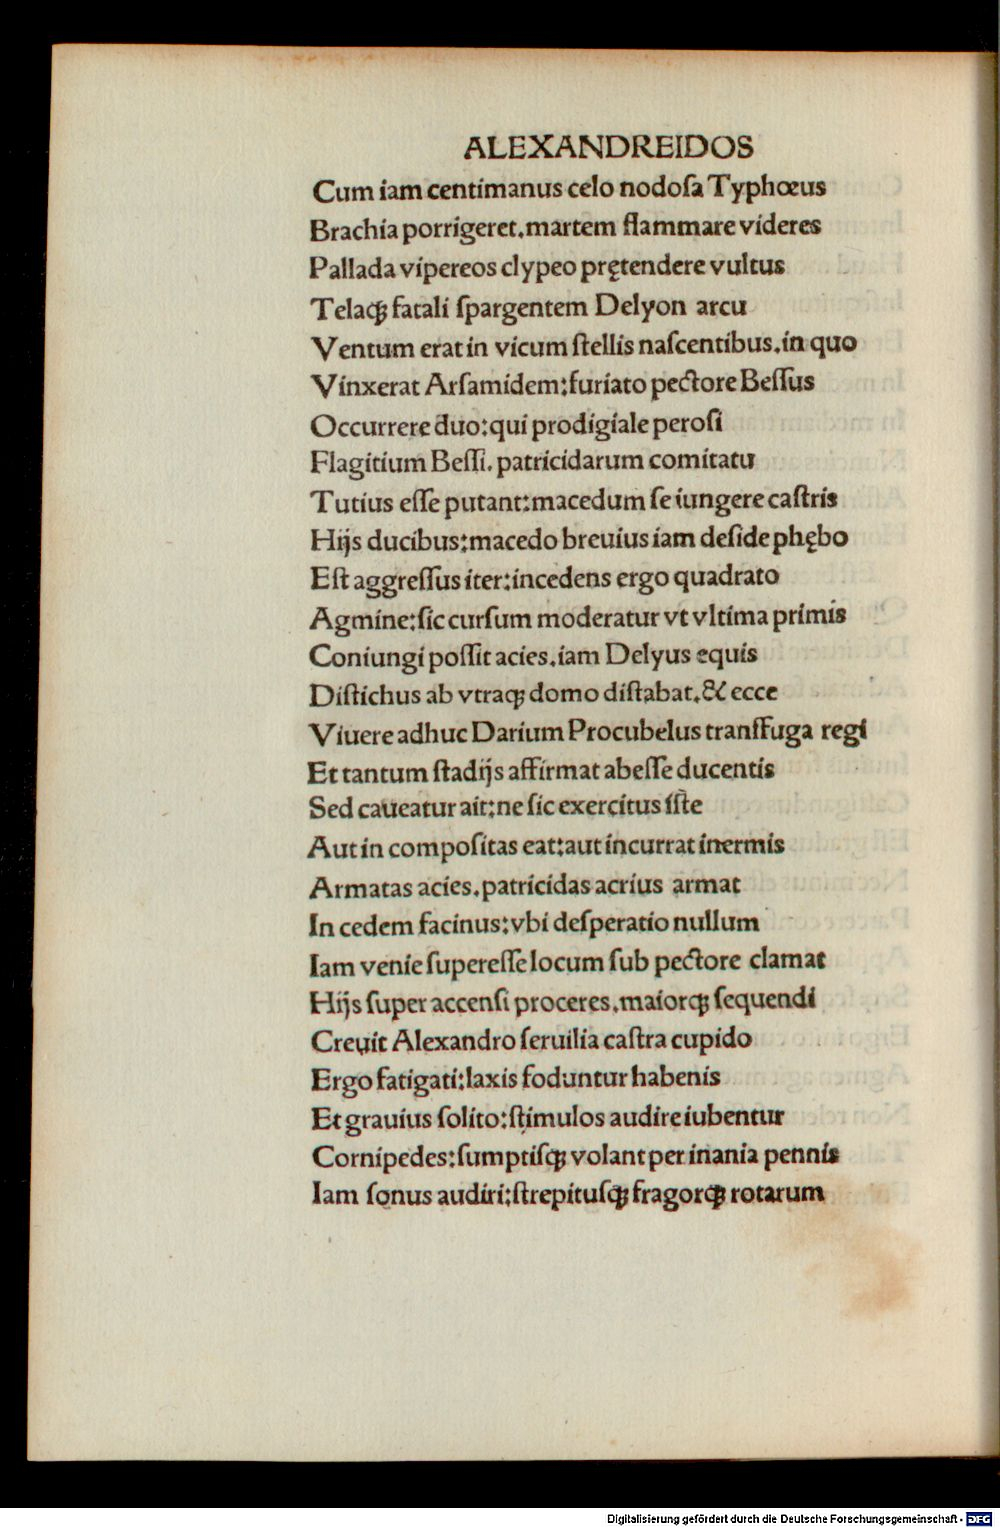 ALEXANDREIDOS
Cum iam centimanus celo nodoſa Typhœus
Brachia porrigeret.martem flammare videres
Pallada vipereos clypeo prętendere vultus
Telaqꝫ fatali ſpargentem Delyon arcu
Ventum erat in vicum ſtellis naſcentibus.in quo
Vinxerat Arſamidem:furiato pectore Beſſus
Occurrere duo:qui prodigiale peroſi
Flagitium Beſſi.patricidarum comitatu
Tutius eſſe putant:macedum ſe iungere caſtris
Hijs ducibus:macedo breuius iam deſide phębo
Eſt aggreſſus iter:incedens ergo quadrato
Agmine:ſic curſum moderatur vt vltima primis
Coniungi poſſit acies.iam Delyus equis
Diſtichus ab vtraqꝫ domo diſtabat.& ecce
Viuere adhuc Darium Procubelus tranſfuga regi
Et tantum ſtadijs affirmat abeſſe ducentis
Sed caueatur ait:ne ſic exercitus iſte
Aut in compoſitas eat:aut incurrat inermis
Armatas acies.patricidas acrius armat
In cedem facinus:vbi deſperatio nullum
Iam venie ſupereſſe locum ſub pectore clamat
Hijs ſuper accenſi proceres.maiorqꝫ ſequendi
Creuit Alexandro ſeruilia caſtra cupido
Ergo fatigati:laxis foduntur habenis
Et grauius ſolito:ſtimulos audire iubentur
Cornipedes:ſumptiſqꝫ volant per inania pennis
Iam ſonus audiri:ſtrepituſqꝫ fragorqꝫ rotarum
Digitalisierung gefördert durch die Deutsche Forschungsgemeinschaft - DFG